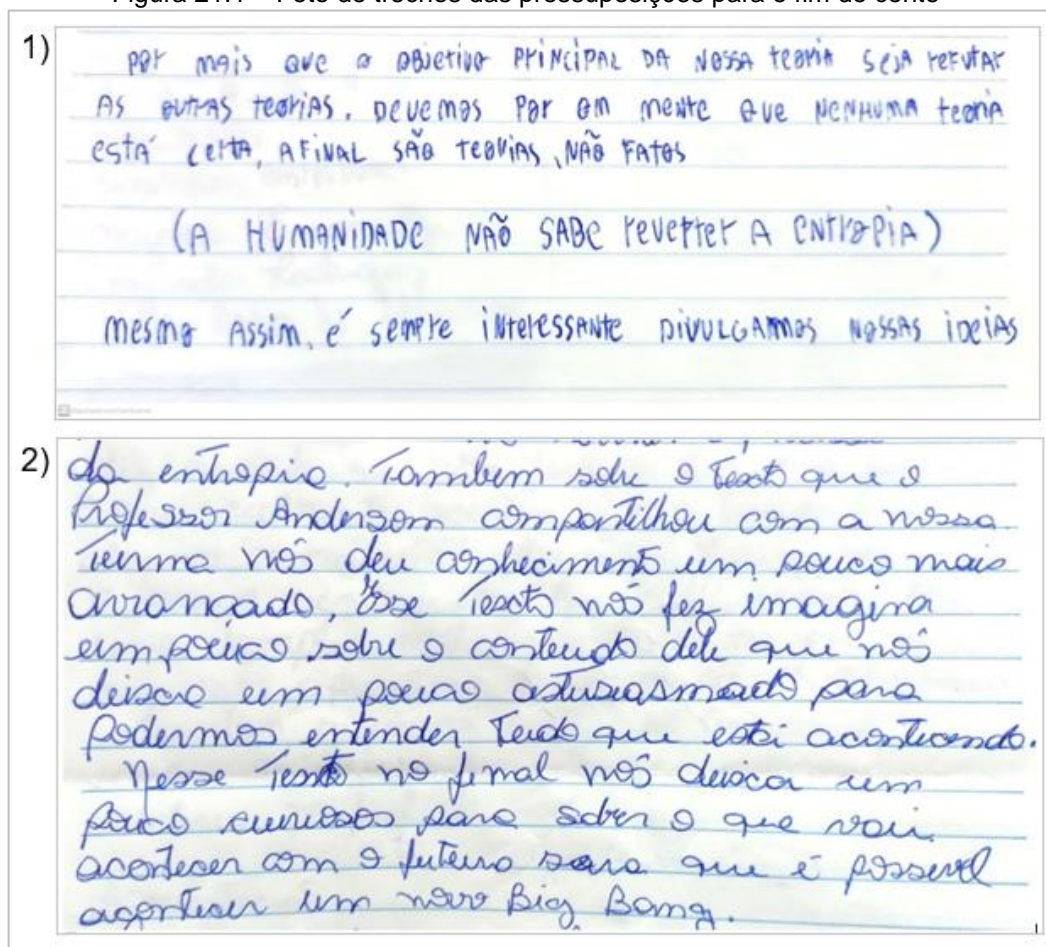 1)
por mais que o objetivo principal da nossa teoria seja refutar
as outras teorias, devemos por em mente que nenhuma teoria
está certa, afinal são teorias, não fatos
(A humanidade não sabe reverter a entropia)
mesmo assim, é sempre interessante divulgarmos nossas ideias
2)
da entropia. Tambem sobre o Texto que o
Professor Anderson compartilhou com a nossa
Turma nós deu conhecimento um pouco mais
avrançado, Esse Texto nós fez imagina
um pouco sobre o conteudo dele que nós
deixa um pouco estusiasmado para
podermos entender Tudo que está acontecendo.
Nesse Texto no final nós deixa um
pouco curiosos para saber o que vai
acontecer com o futuro sera que é possivel
acontecer um novo Big Bang.